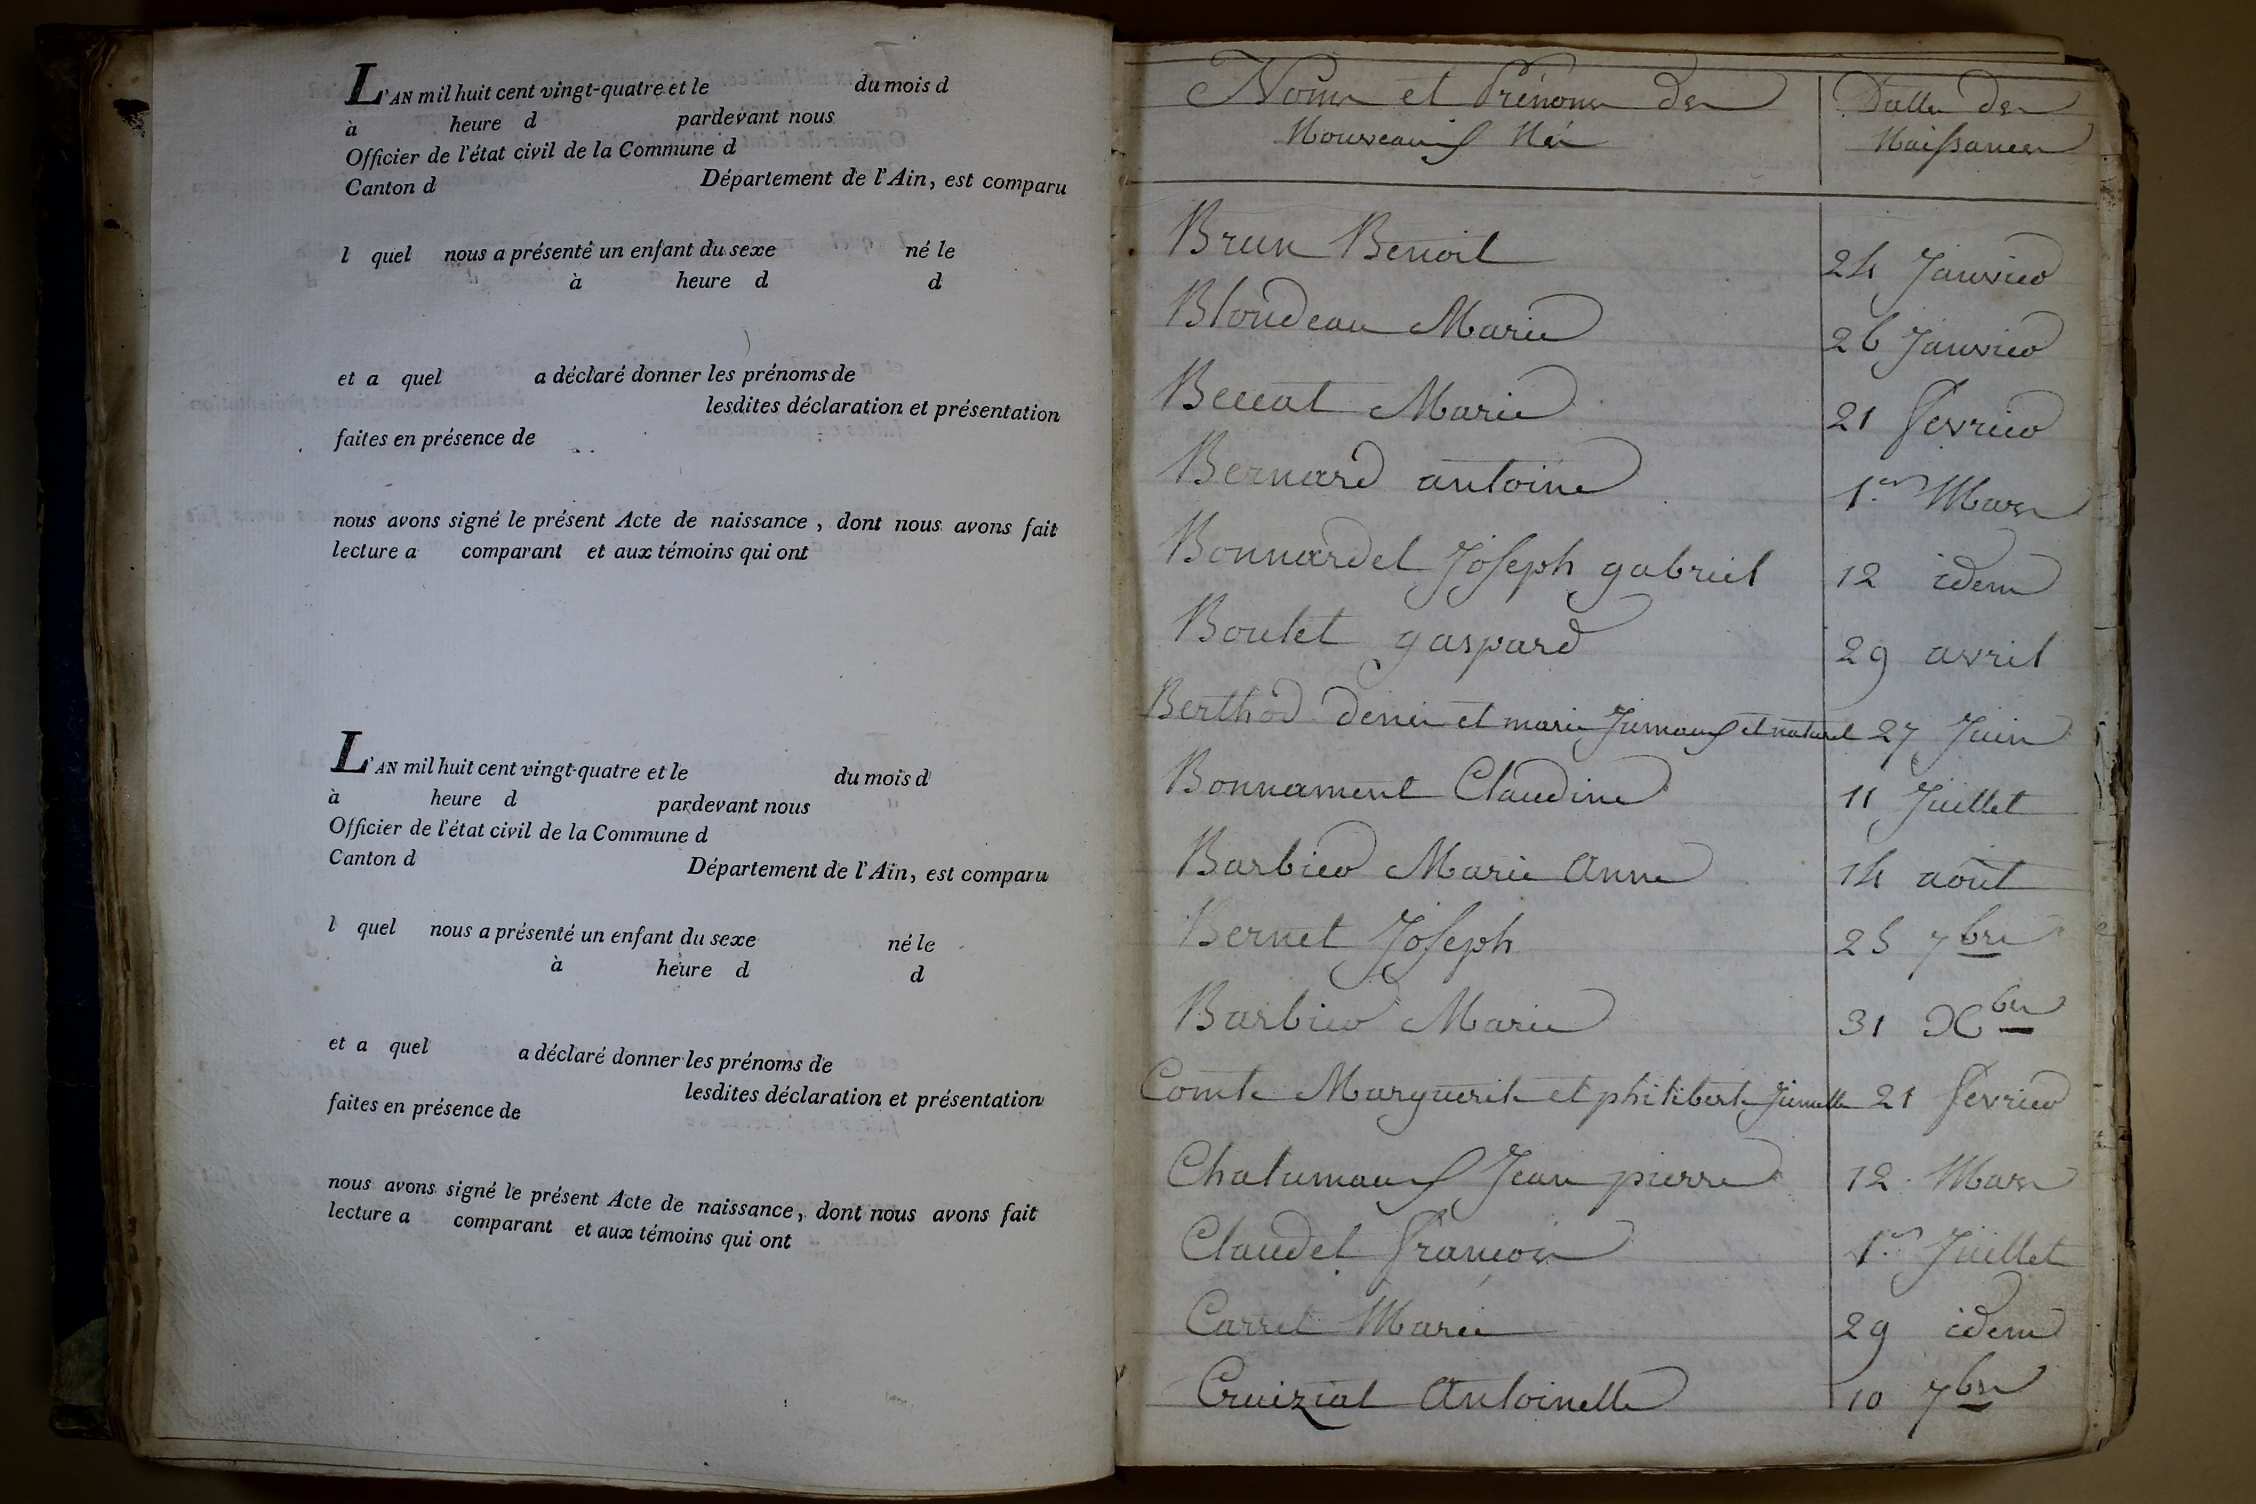 L'AN mil huit cent vingt-quatre et le du mois d
à heure d pardevant nous
Officier de l'état civil de la Commune d
Canton d Département de l'Ain, est comparu
l quel nous a présenté un enfant du sexe né le
à heure d d
et a quel a déclaré donner les prénoms de
lesdites déclaration et présentation
faites en présence de
nous avons signé le présent Acte de naissance, dont nous avons fait
lecture a comparant et aux témoins qui ont
L'AN mil huit cent vingt-quatre et le du mois d
à heure d pardevant nous
Officier de l'état civil de la Commune d
Canton d Département de l'Ain, est comparu
l quel nous a présenté un enfant du sexe né le
à heure d d
et a quel a déclaré donner les prénoms de
lesdites déclaration et présentation
faites en présence de
nous avons signé le présent Acte de naissance, dont nous avons fait
lecture a comparant et aux témoins qui ont
Noms et Prénoms des Datte des
Nouveaux Nés Naissances
Brun Benoit 24 Janvier
Blondeau Marie 26 Janvier
Beccat Marie 21 fevrier
Bernard antoine 1.er Mars
Bonnardel Joseph gabriel 12 idem
Boulet gaspard 29 avril
Berthod denis et marie Jumaux et naturel 27 Juin
Bonnament Claudine 11 Juillet
Barbier Marie Anne 14 août
Bernet Joseph 25 7bre
Barbier Marie 31 Xbre
Comte Marguerite et philiberte Jumelle 21 fevrier
Chalumaux Jean pierre 12 Mars
Claudel françois 1.er Juillet
Carret Marie 29 idem
Cruiziat Antoinette 10 7bre